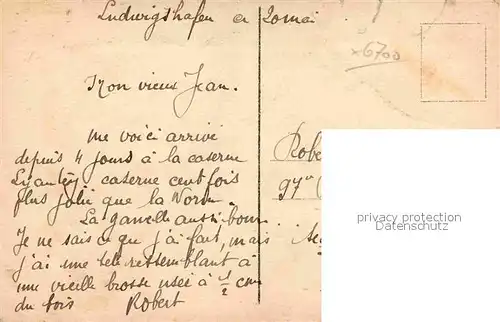 Ludwigshafen ce 20 mai
x6700
Mon vieux Jean.
Me voici arrivé
depuis 4 jours à la caserne
Lyautey caserne cent fois
plus jolie que la
La gamelle aussi bonne
Je ne sais ce que j'ai fait, mais
j'ai une tete ressemblant à
une vieille brosse usée à 1/2 cm
du bois Robert
Robe
97
privacy protection
Datenschutz